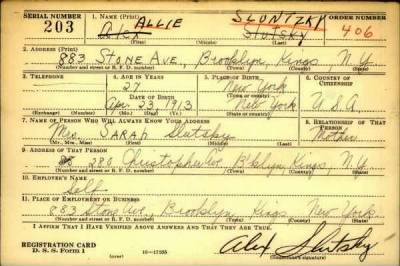 SERIAL NUMBER 1. NAME (Print) ORDER NUMBER
ALLIE SLUNTZKY
203 Alex Slutsky 406
(First) (Middle) (Last)
2. ADDRESS (Print)
883 Stone Ave, Brooklyn, Kings, N.Y.
(Number and street or R. F. D. number) (Town) (County) (State)
3. TELEPHONE 4. AGE IN YEARS 5. PLACE OF BIRTH 6. COUNTRY OF CITIZENSHIP
27 New York
DATE OF BIRTH (Town or county)
Apr. 23, 1913 New York U.S.A
(Exchange) (Number) (Mo.) (Day) (Yr.) (State or country)
7. NAME OF PERSON WHO WILL ALWAYS KNOW YOUR ADDRESS 8. RELATIONSHIP OF THAT PERSON
Mrs. SARAH Slutsky Mother
(Mr., Mrs., Miss) (First) (Middle) (Last)
9. ADDRESS OF THAT PERSON
280 Christopher Ave, Bklyn, Kings, N.Y.
(Number and street or R. F. D. number) (Town) (County) (State)
10. EMPLOYER'S NAME
Self
11. PLACE OF EMPLOYMENT OR BUSINESS
883 Stone Ave, Brooklyn Kings, New York.
(Number and street or R. F. D. number) (Town) (County) (State)
I AFFIRM THAT I HAVE VERIFIED ABOVE ANSWERS AND THAT THEY ARE TRUE.
REGISTRATION CARD
D. S. S. Form 1 (over) 16—17105 Alex Slutsky
(Registrant's signature)